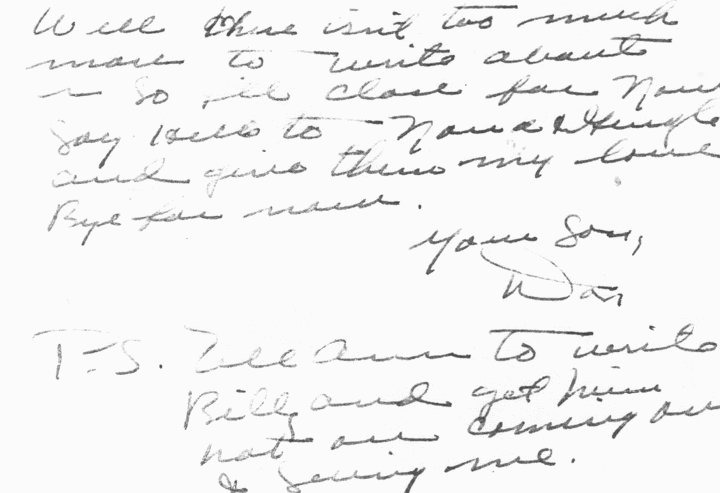 Well there isn't too much
more to write about
so I'll close for Now
Say Hello to Nona &
and give them my love
Bye for now.
Your Son,
P.S. Tell Ann to write
Billy and get him
hot on coming out
& seeing me.